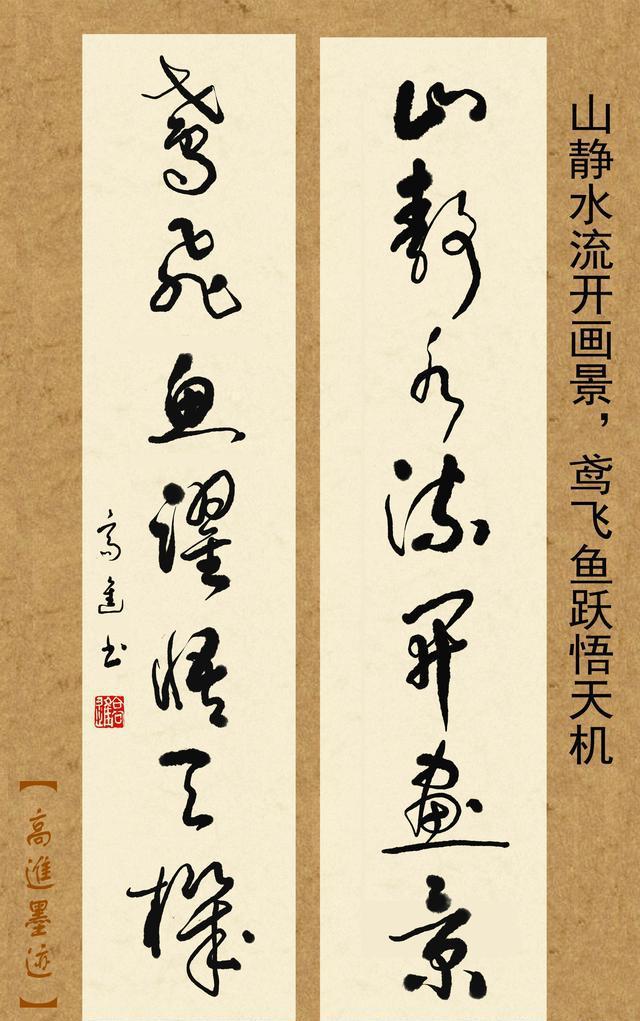 山静水流开画景，鸢飞鱼跃悟天机
山静水流開畫景
鳶飛魚躍悟天機
高進书
【高進墨迹】